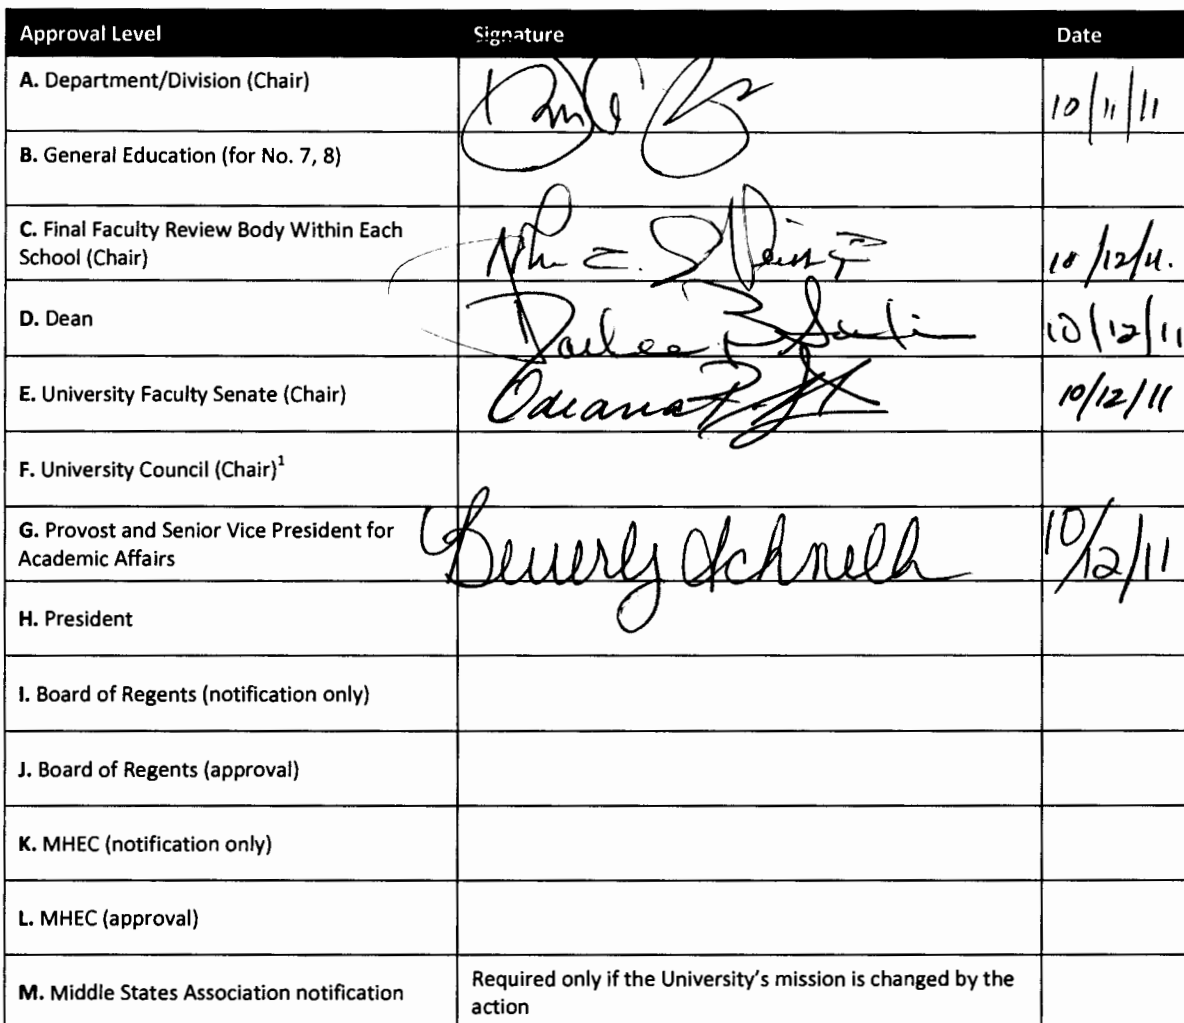 Approval Level Signature Date
A. Department/Division (Chair) 10/11/11
B. General Education (for No. 7, 8)
C. Final Faculty Review Body Within Each
School (Chair) 10/12/11.
D. Dean 10/12/11
E. University Faculty Senate (Chair) 10/12/11
F. University Council (Chair)¹
G. Provost and Senior Vice President for
Academic Affairs Beverly Schnell 10/12/11
H. President
I. Board of Regents (notification only)
J. Board of Regents (approval)
K. MHEC (notification only)
L. MHEC (approval)
M. Middle States Association notification Required only if the University's mission is changed by the
action